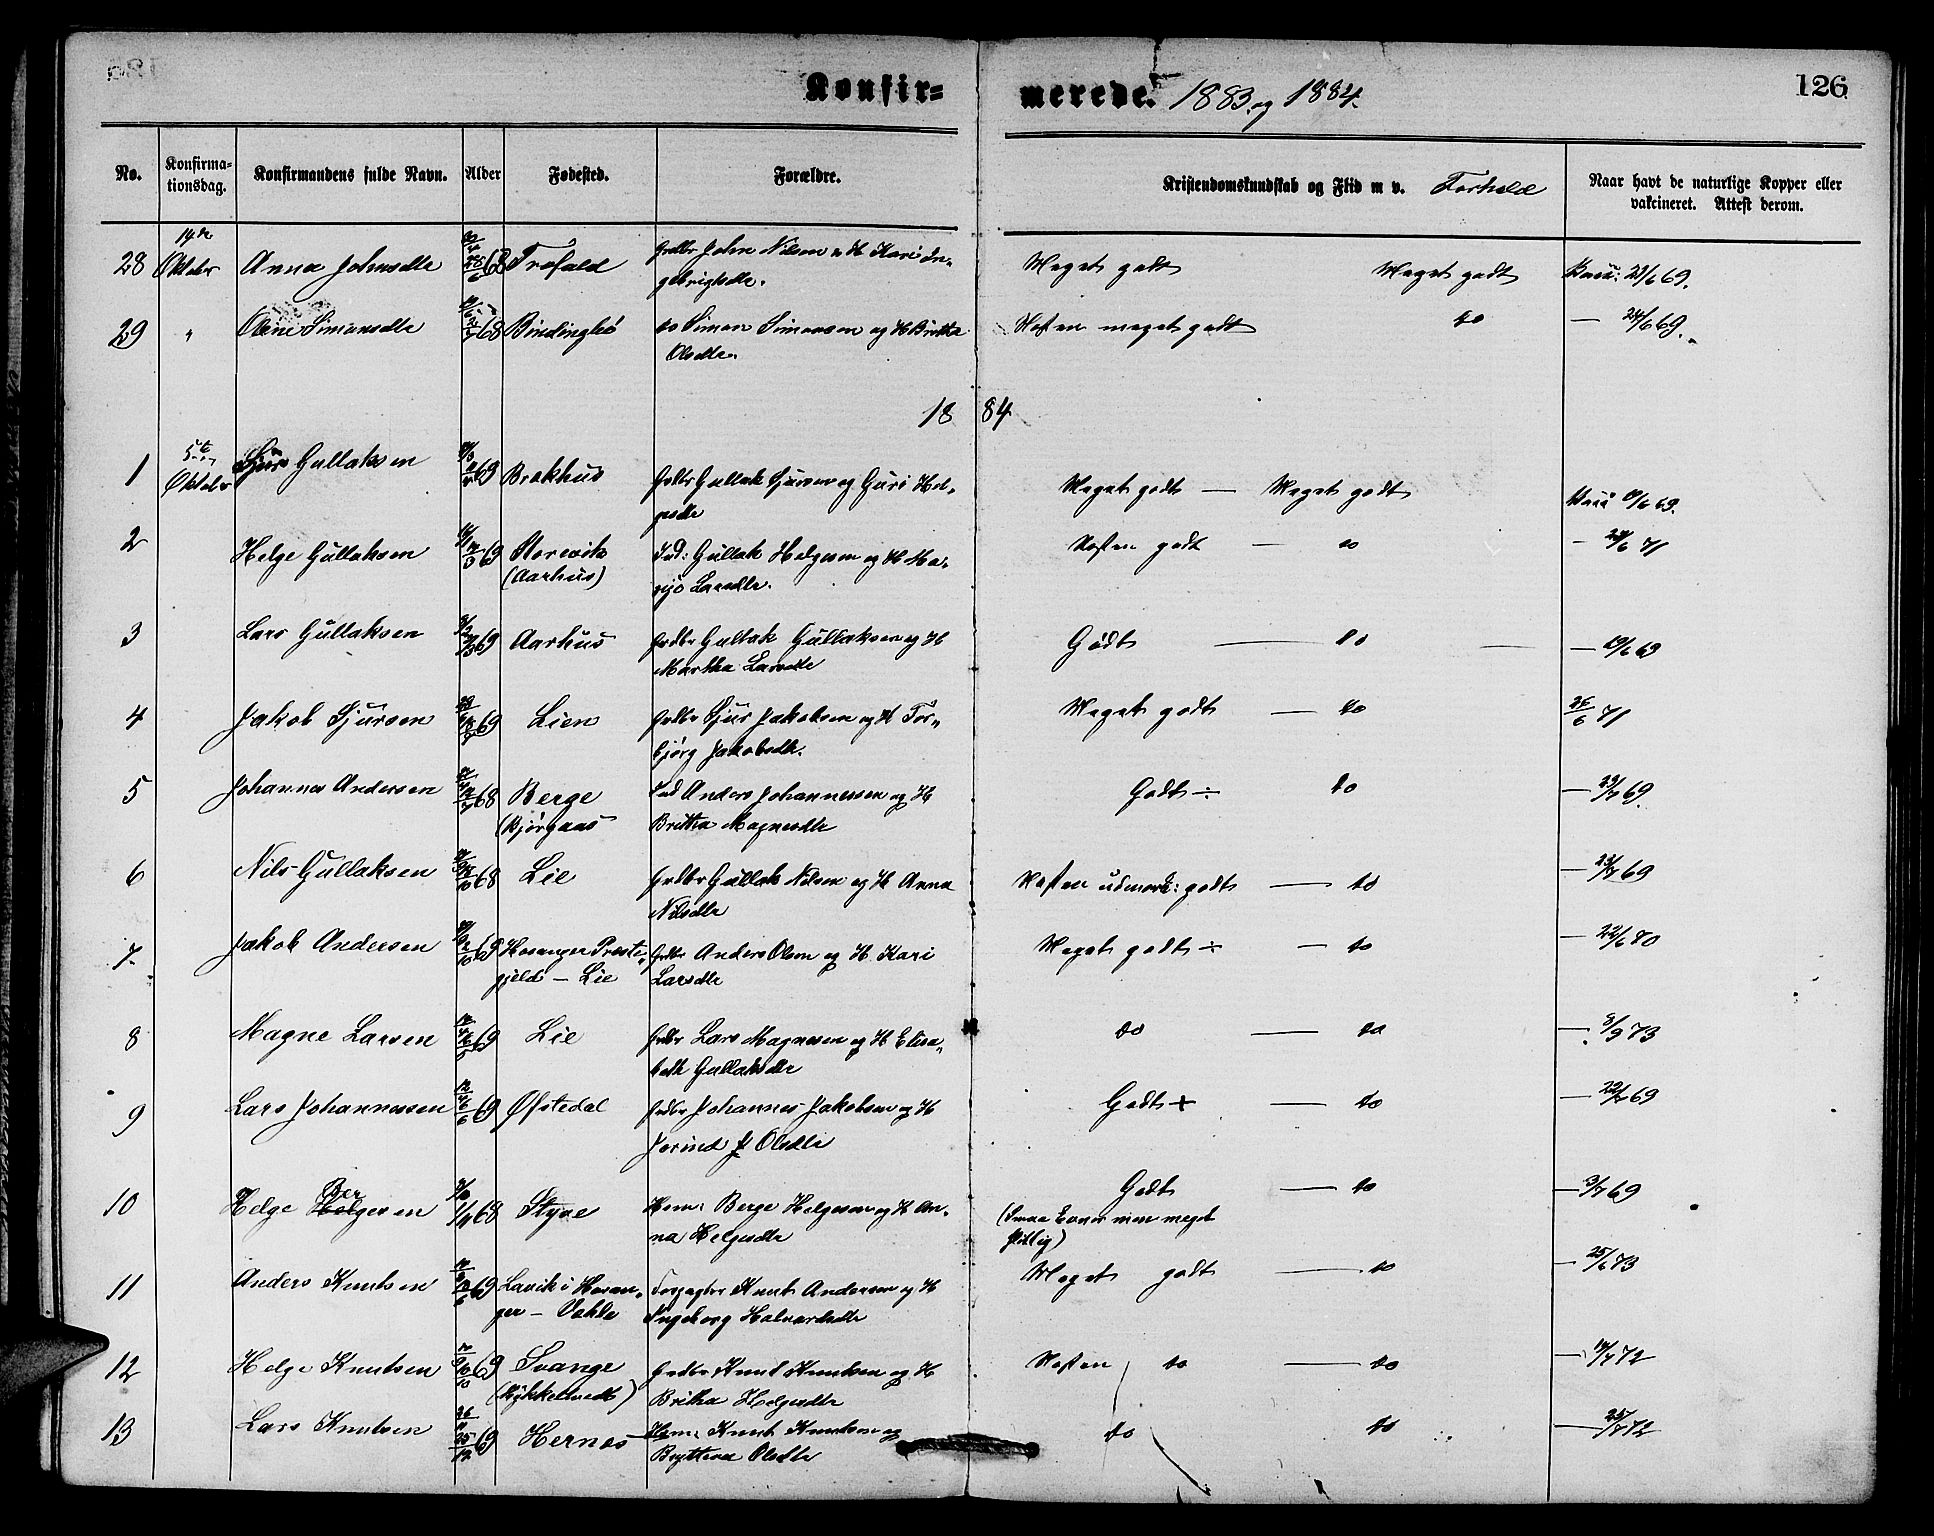 Konfir= merede. 1883. og 1884.
126
No.
Konfirma=
tionsdag.
Konfirmandens fulde Navn.
Alder
Fødested.
Forældre.
Kristendomskundskab og Flid m v. Forhold
Naar havt de naturlige Kopper eller
vakcineret. Attest derom.
14de
28 Oktober Anna Johnsdtr 68 Trefald Grdbr John Nilsen & H Kari In-
gebrigtsdtr.
Meget godt Meget godt Vacc: 23/6 69.
29 " Simonsdtr 68 Bindingbø do Simon Simonsen og H Britha
Olsdtr.
Næsten meget godt do — 24/6 69.
1884
5te
1 Oktober Sjur Gullaksen 69 Brakhus Grdbr Gullak Sjursen og Guri Hel-
gesdtr
Meget godt — Meget godt Vacc 19/6 69.
2 Helge Gullaksen 69 Storevik
(Aarhus)
Ind: Gullak Helgesen og H Ma-
Larsdtr.
Næsten godt — do — 71
3 Lars Gullaksen 69 Aarhus Grdbr Gullak Gullaksen og H
Martha Larsdtr
Godt — do — 19/6 69
4 Jakob Sjursen 69 Lien Grdbr Sjur Jakobsen og H Tor-
bjørg Jakobsdtr.
Meget godt — do 26/6 71
5 Johannes Andersen 68 Berge
(Bjørgaas
Ind Anders Johannessen og H
Britha Magnesdtr
Godt ÷ do — 23/7 69.
6 Nils Gullaksen 68 Lie Grdbr Gullak Nilsen og H Anna
Nilsdtr
Næsten udmærk: godt — do — 23/7 69
7. Jakob Andersen 69 Hosanger Præste-
gjeld — Lie
Grdbr Anders Olsen og H Kari
Larsdtr
Meget godt ÷ — do — 22/6 70
8 Magne Larsen 69 Lie Grdbr Lars Magnesen og H Elisa-
beth Gullaksdtr
do — do — 8/9 73
9 Lars Johannessen 69 Øfstedal Grdbr Johannes Jakobsen og H
Jorind Olsdtr
Godt + — do — 69
10 Helge Ber
Helgesen 68 Styve Hsm: Berge Helgesen og H An-
na Helgesdtr
Godt — do — 3/7 69
(Smaa Evner men meget
flittig)
11 Anders Knutsen 69 Lavik i Hosan-
ger —
Forpagter Knut Andersen og H
Ingeborg Halvardsdtr
Meget godt — do — 25/6 73
12 Helge Knutsen 69 Svange
Grdbr Knut Knutsen og H
Britha Helgesdtr
Næsten do — do — 72
13 Lars Knutsen 69 Hernes Hsm: Knut Knutsen og
Olsdtr
do do — 72